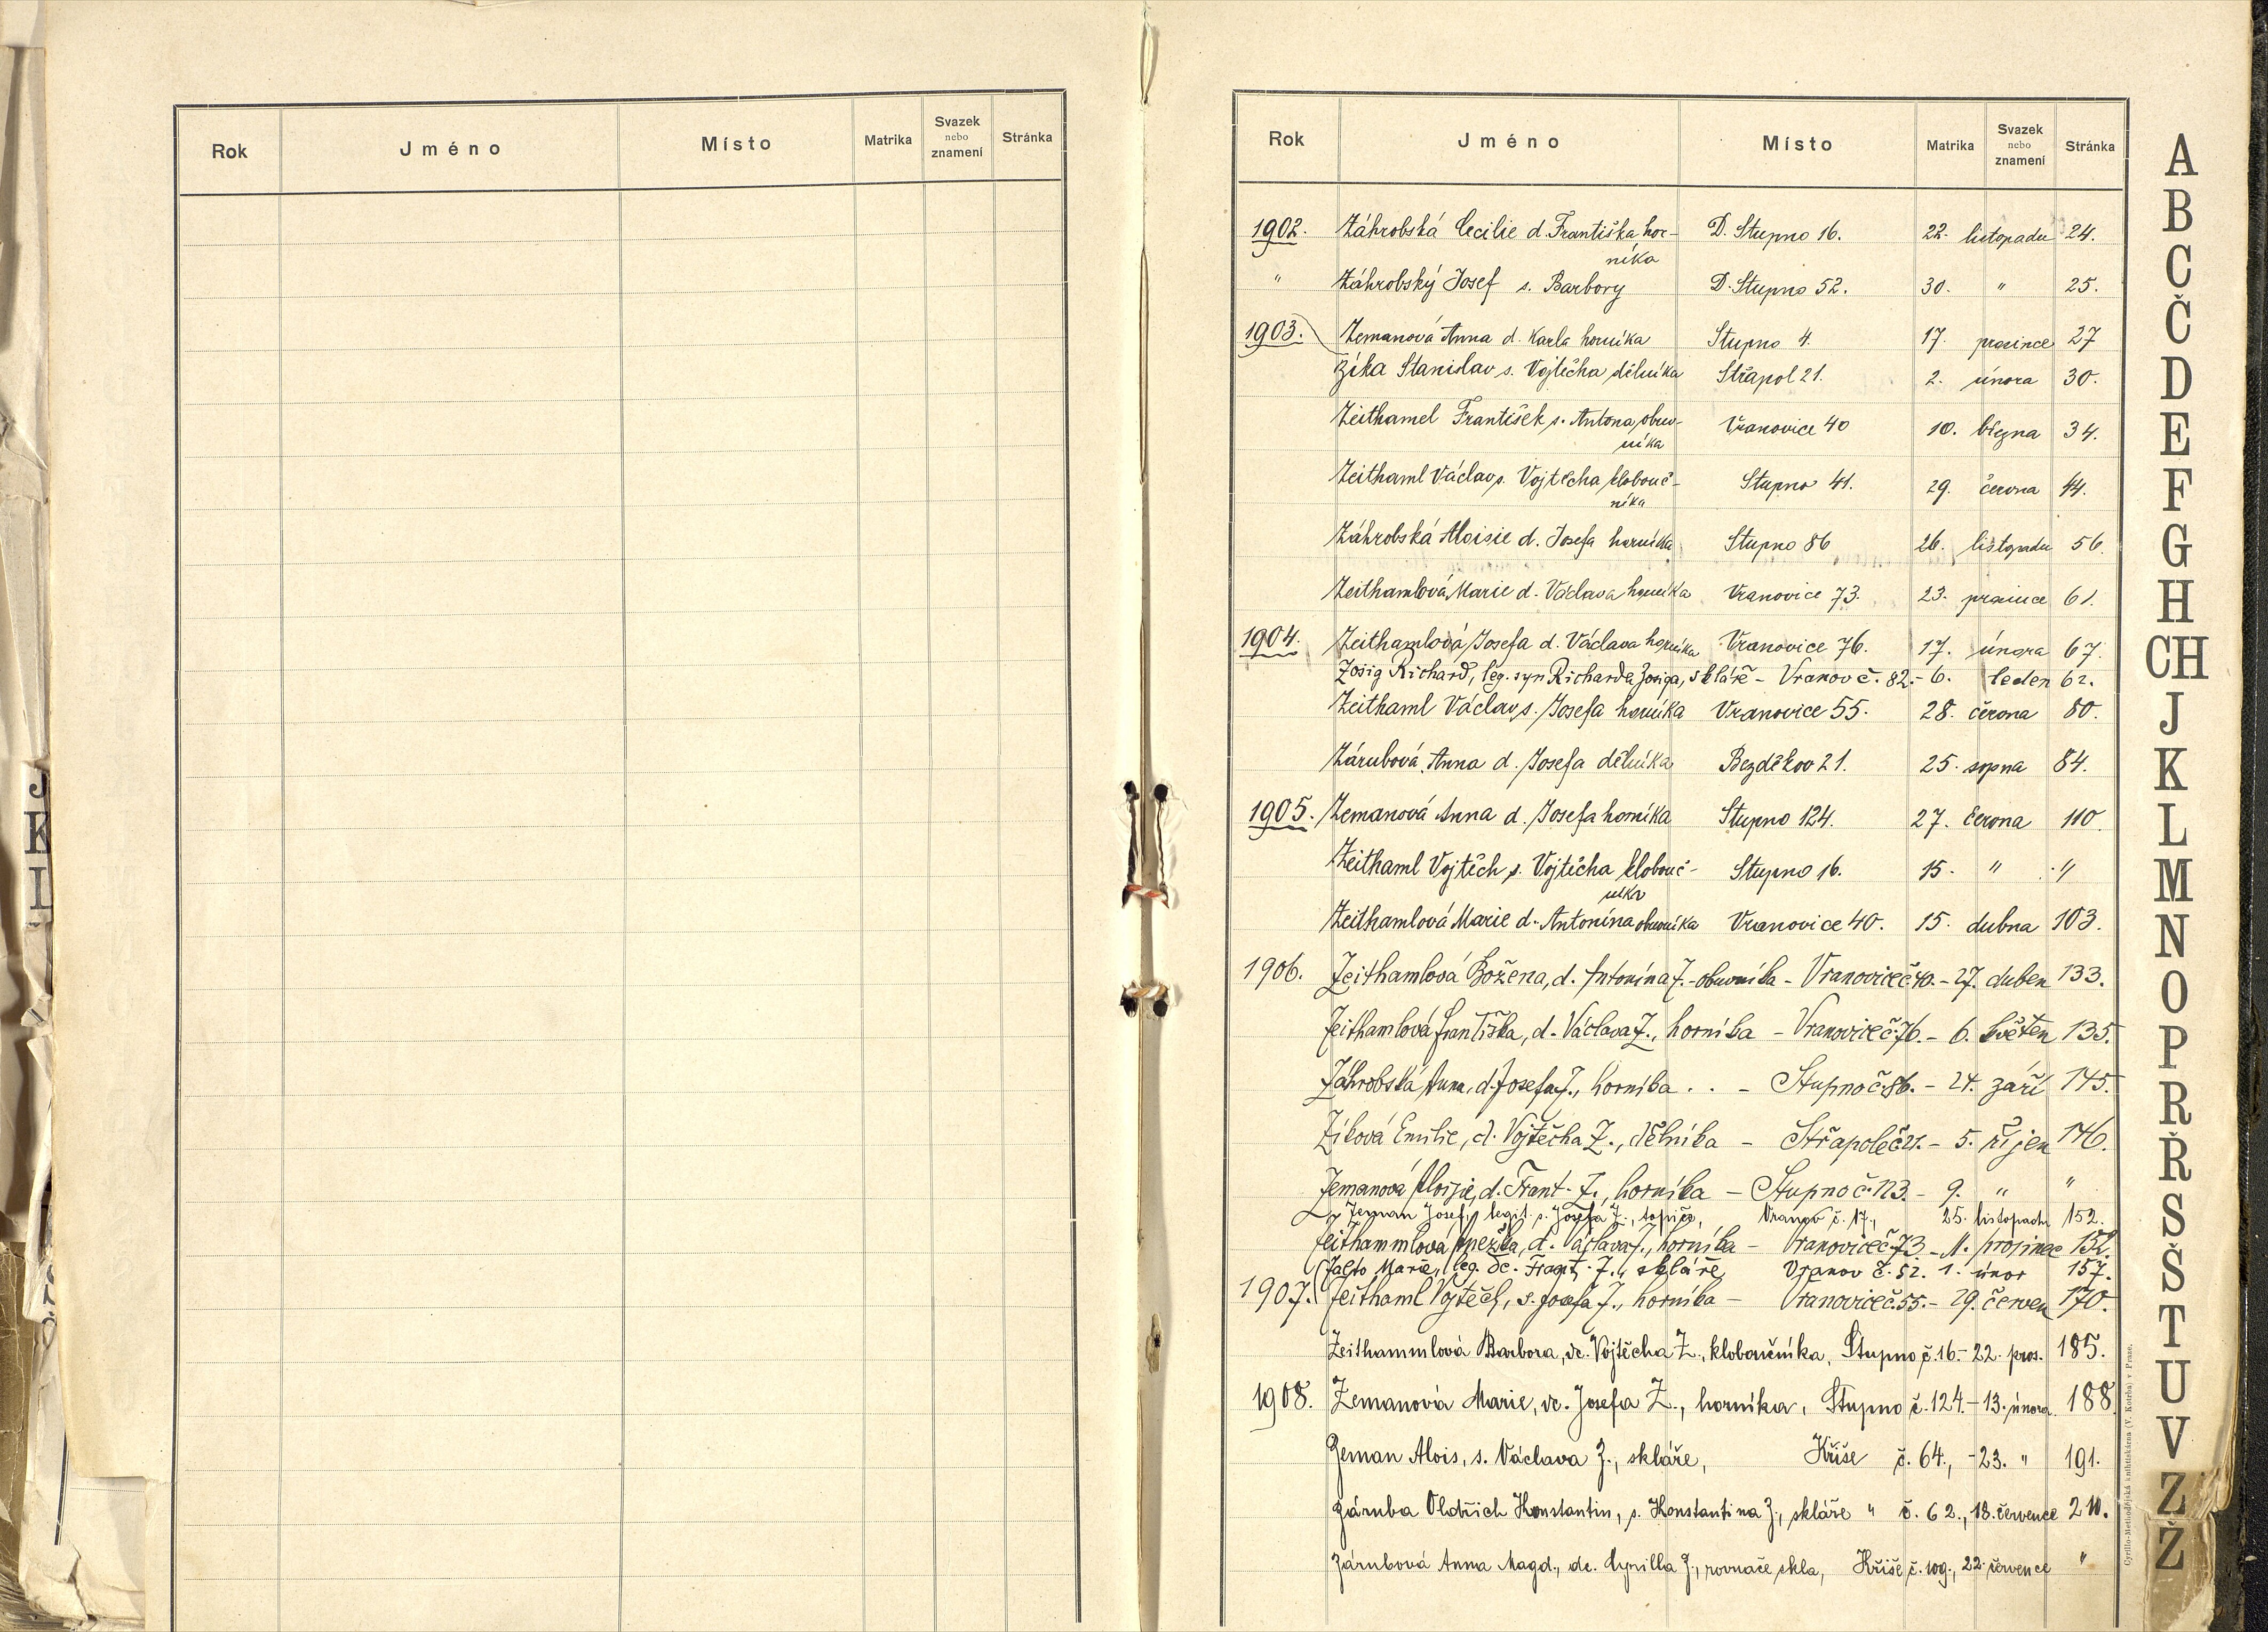 Rok Jméno Místo Matrika Svazek nebo znamení Stránka
Rok Jméno Místo Matrika Svazek nebo znamení Stránka
1902. Záhrobská Cecilie d. Františka hor- D. Stupno 16. 22. listopadu 24.
níka
" Záhrobský Josef s. Barbory D. Stupno 52. 30. " 25.
1903. Zemanová Anna d. Karla horníka Stupno 4. 17. prosince 27
Zíka Stanislav s. Vojtěcha dělníka Střapol 21. 2. února 30.
Zeithamel František s. Antona obuv- Vranovice 40 10. března 34.
níka
Zeithaml Václav s. Vojtěcha klobouč- Stupno 41. 29. června 44.
níka
Záhrobská Aloisie d. Josefa horníka Stupno 86 26. listopadu 56.
Zeithamlová Marie d. Václava horníka Vranovice 73. 23. prosince 61.
1904. Zeithamlová Josefa d. Václava horníka Vranovice 76. 17. února 67.
Zosig Richard, leg. syn Richarda Zosiga, skláře - Vranov č. 82. - 6. leden 62.
Zeithaml Václav s. Josefa horníka Vranovice 55. 28. června 80.
Zárubová Anna d. Josefa dělníka Bezděkov 21. 25. srpna 84.
1905. Zemanová Anna d. Josefa horníka Stupno 124. 27. června 110.
Zeithaml Vojtěch s. Vojtěcha klobouč- Stupno 16. 15. " "
níka
Zeithamlová Marie d. Antonína obuvníka Vranovice 40. 15. dubna 103.
1906. Zeithamlová Božena, d. Antonína Z. - obuvníka - Vranovice č. 40. - 27. duben 133.
Zeithamlová Františka, d. Václava Z., horníka - Vranovice č. 76. - 6. květen 135.
Záhrobská Anna, d. Josefa Z., horníka . . - Stupno č. 86. - 24. září 145.
Zíková Emilie, d. Vojtěcha Z., dělníka - Střapole č. 21. - 5. říjen 146.
Zemanová Aloisie, d. Frant. Z., horníka - Stupno č. 123. - 9. " "
Zeman Josef, legit. s. Josefa Z., topiče, Vranov č. 17., 25. listopadu 152.
Zeithammlová Anežka, d. Václava Z., horníka - Vranovice č. 73. - 11. prosinec 152.
Marie, leg. dc. Frant. Z., skláře, Vranov č. 52. 1. únor 157.
1907. Zeithaml Vojtěch, s. Josefa Z., horníka - Vranovice č. 55. - 29. červen 170.
Zeithammlová Barbora, dc. Vojtěcha Z., kloboučníka, Stupno č. 16. - 22. pros. 185.
1908. Zemanová Marie, dc. Josefa Z., horníka, Stupno č. 124. - 13. února 188.
Zeman Alois, s. Václava Z., skláře, Kříše č. 64., - 23. " 191.
Záruba Oldřich Konstantin, s. Konstantina Z., skláře " č. 62., 18. července 210.
Zárubová Anna Magd., dc. Cyrilla Z., rovnače skla, Kříše č. 109., 22. července "
A
B
C
Č
D
E
F
G
H
CH
J
K
L
M
N
O
P
R
Ř
S
Š
T
U
V
Z
Ž
Cyrillo-Methodějská knihtiskárna (V. Kotrba) v Praze.
J
K
L